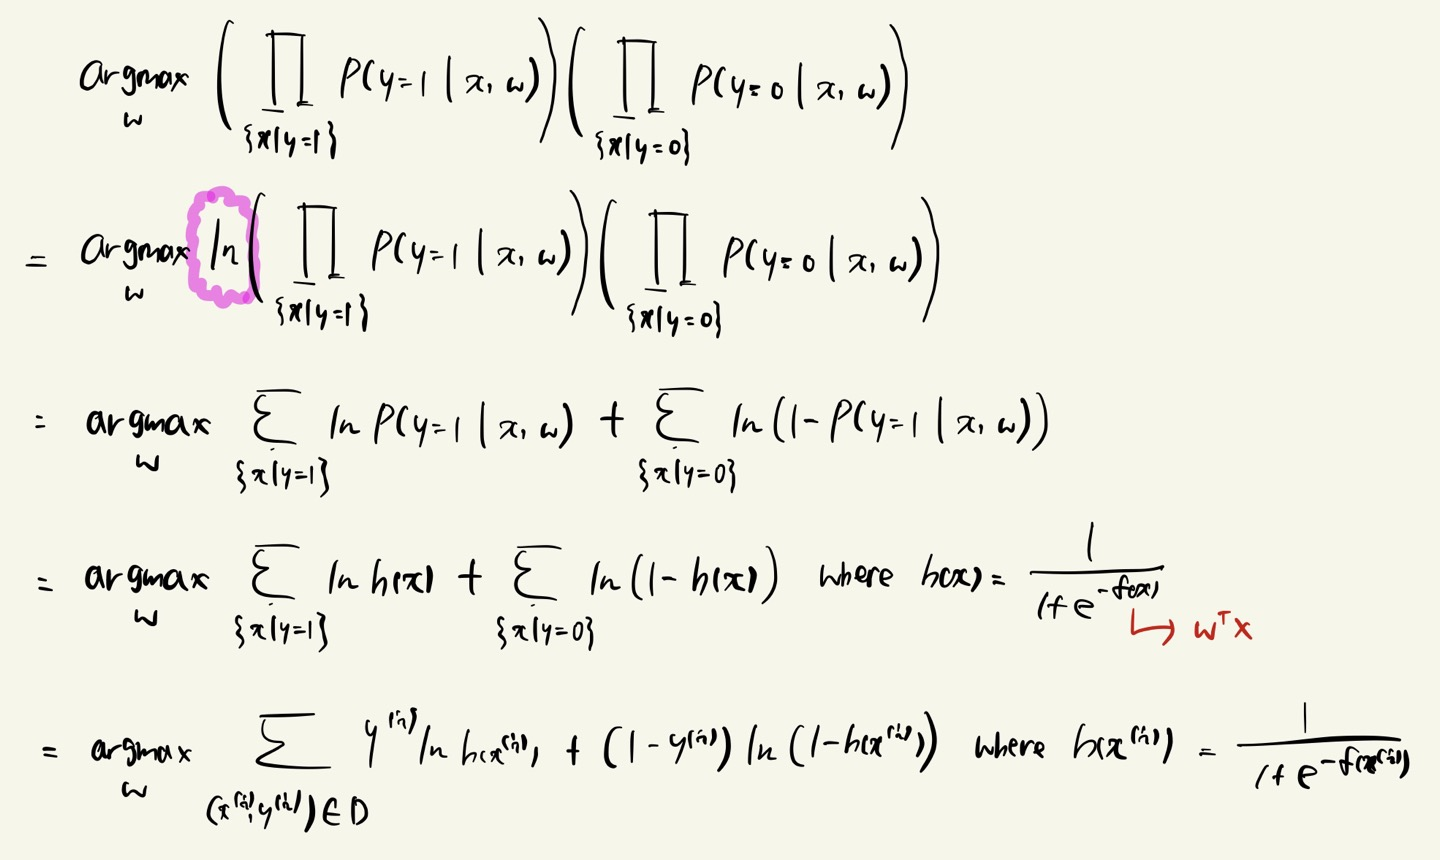 argmax_w ( ∏_{x|y=1} P(y=1 | x, w) ) ( ∏_{x|y=0} P(y=0 | x, w) )
= argmax_w ln ( ∏_{x|y=1} P(y=1 | x, w) ) ( ∏_{x|y=0} P(y=0 | x, w) )
= argmax_w Σ_{x|y=1} ln P(y=1 | x, w) + Σ_{x|y=0} ln (1-P(y=1 | x, w))
= argmax_w Σ_{x|y=1} ln h(x) + Σ_{x|y=0} ln (1-h(x)) where h(x) = 1/(1+e^{-f(x)})
→ w^T x
= argmax_w Σ_{(x^{(i)}, y^{(i)}) ∈ D} y^{(i)} ln h(x^{(i)}) + (1-y^{(i)}) ln (1-h(x^{(i)})) where h(x^{(i)}) = 1/(1+e^{-f(x^{(i)})})